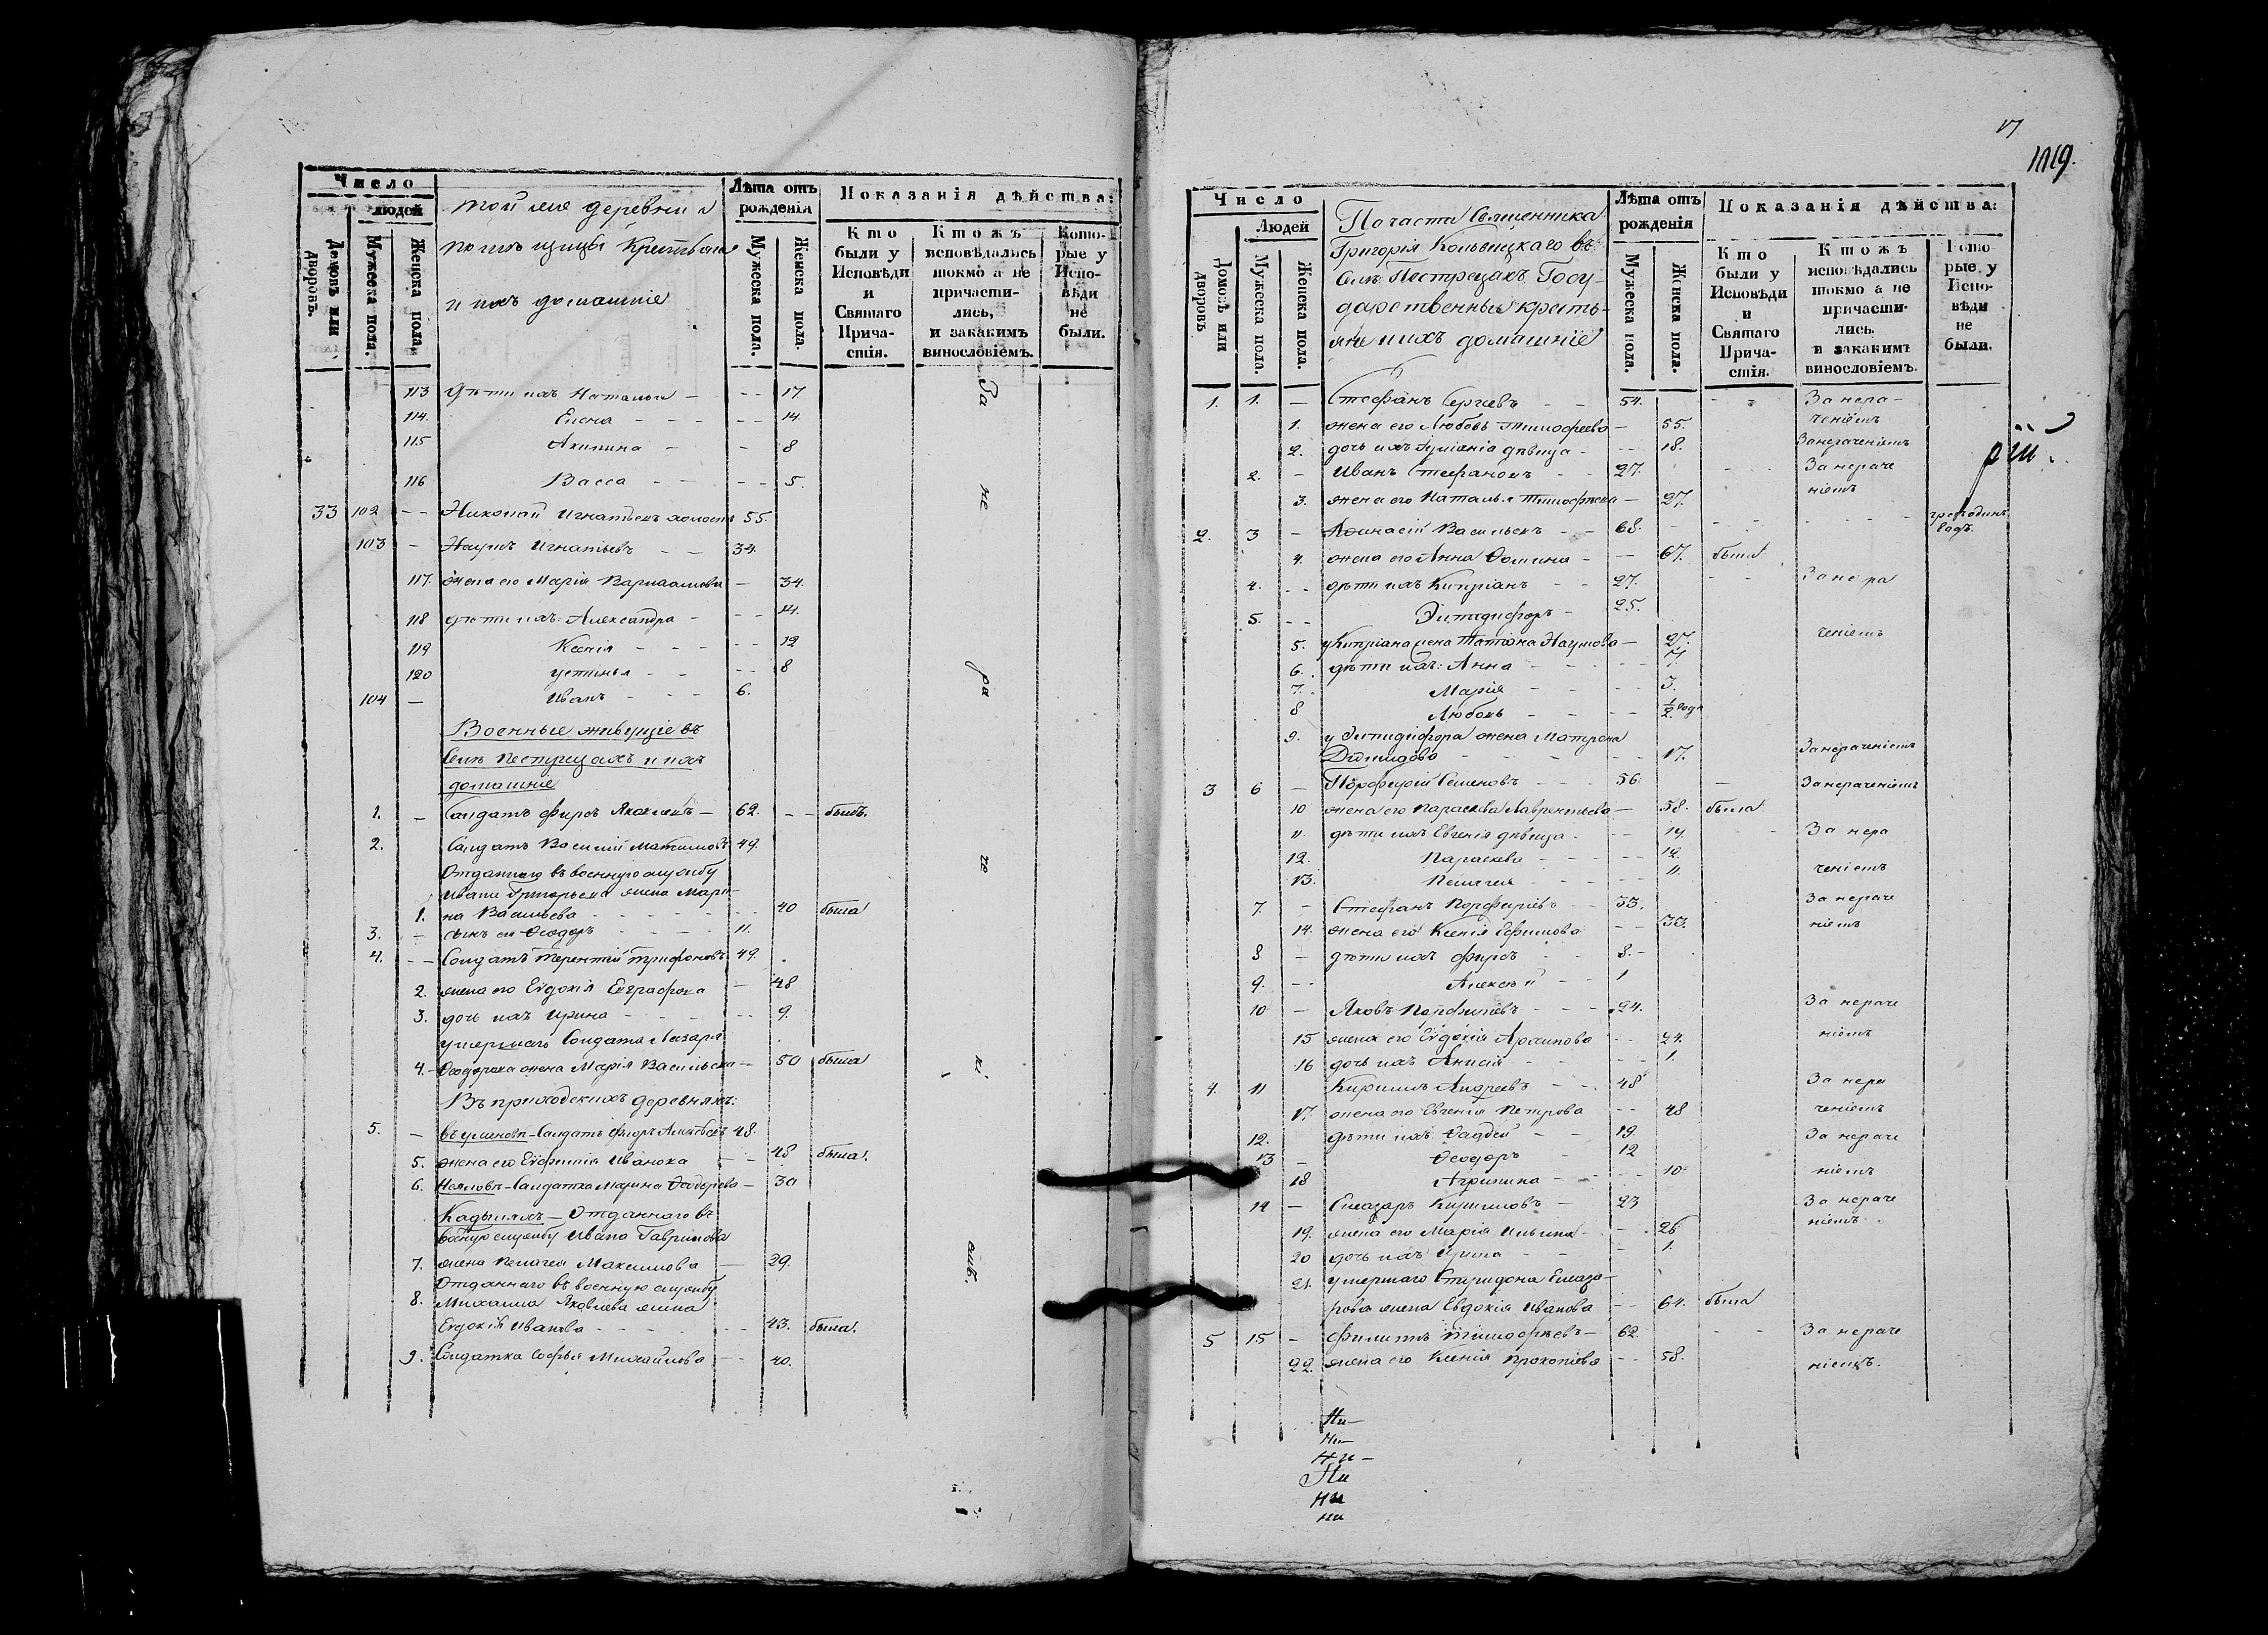 Число
людей
Домовъ или дворовъ.
Мужеска пола.
Женска пола.
той же деревни и
и ихъ домашніе
Лѣта отъ рожденія
Мужеска пола.
Женска пола.
Показанія дѣйства:
Кто были у Исповѣди и Святаго Причастія.
Ктожъ исповѣдались токмо а не причастились, и закакимъ винословіемъ.
Которые у Исповѣди не были.
113 Дѣти ихъ Наталья - -- 17
114. Елена - - - -- 14.
115 Акилина - - 8
116 Васса - - -- 5.
За не ра че ні емъ.
33 102 -- Николай Игнатьевъ холостъ 55.
103 - Наумъ Игнатьевъ - - 34.
117. жена его Марія Варлаамова - 34.
118 дѣти ихъ: Александра - -- 14.
119 Ксенія - - - -- 12
120 Устинья - - -- 8
104 - Иванъ - - - 6.
Военные живущіе въ
Селѣ Пестрецахъ и ихъ
домашніе
1. - Солдатъ Фирсъ Яковлевъ - 62. -- былъ.
2. Солдатъ Василій 49.
Отданнаго въ военную службу
Ивана Григорьева жена Мари-
1. на Васильева - - - - 40 была
3. - сынъ ея Ѳеодоръ - - - 11.
4. -- Солдатъ Терентій Трифоновъ 49.
2. жена его Евдокія Евграфова - 48
3. дочь ихъ Ирина - - - -- 9.
умершаго Солдата Лазаря
4. - Ѳеодорова жена Марія Васильева - 50 была
Въ приходскихъ деревняхъ:
5. - Солдатъ 48.
5. жена его Евфимія Иванова - 48 была.
6. Солдатка Марина Ѳеодорова - 30
Отданнаго въ
военную службу Ивана Гаврилова
7. жена Пелагея Максимова - 29.
Отданнаго въ военную службу
8. Михаила Яковлева жена
Евдокія Иванова - - - 43. была.
9. Солдатка Софья Михайлова - 40.
17
1119.
Число
Людей
Домовъ или дворовъ
Мужеска пола.
Женска пола.
По части Священника
Григорія Кольвицкаго въ
Селѣ Пестрецахъ Госу-
дарственные кресть-
яне и ихъ домашніе
Лѣта отъ рожденія
Мужеска пола.
Женска пола.
Показанія дѣйства:
Кто были у Исповѣди и Святаго Причастія.
Ктожъ исповѣдались токмо а не причастились. и закакимъ винословіемъ.
Которые у Исповѣди не были.
1. 1. - Стефанъ Сергѣевъ - - 54. - - За нера-
1. жена его Любовь Тимофеева - 55. ченіемъ
2. дочь ихъ дѣвица - -- 18. За нераченіемъ
2. - Иванъ Стефановъ - - 27. За нераче
3. жена его Наталья Тимофѣева - 27. ніемъ
2. 3 - Аѳанасій Васильевъ - - 68.
4. жена его Анна Ѳомина - - 67. была
4. -- дѣти ихъ Кипріанъ - - 27. За нера
5. -- Эпидифоръ - 25.
5. у Кипріана жена Татіана Наумова - 27. ченіемъ
6. дѣти ихъ: Анна - - -
7. Марія - - -- 3.
8 Любовь - - -- 1/2 года
9. у Эпидифора жена Матрона
- - - - 17. За нераченіемъ
3 6 - Порфирій Семеновъ - - 56. - За нераченіемъ
10 жена его Параскева Лаврентьева - 58. была.
11. дѣти ихъ Евгенія дѣвица - -- 19. За нера
12. Параскева - - -- 12.
13. Пелагея - - - 11. ченіемъ
7. - Стефанъ Порфиріевъ - - 33. За нераче
14. жена его Ксенія Ефимова -- 33. ніемъ
8 - дѣти ихъ Фирсъ - - 8. -
9. -- Алексѣй - - 1
10 - Яковъ Порфиріевъ - - - 24. За нераче
15 жена его Евдокія Архипова -- 24. ніемъ
16 дочь ихъ Анисія - - -- 1.
4. 11 Кириллъ Андреевъ - - 48 За нера
17. жена его Евгенія Петрова -- 48 ченіемъ
12. дѣти ихъ Ѳаддей - - 19. За нераче
13 - Ѳеодоръ - 12
18 Агрипина - - - 10. ніемъ
14 - Елеазаръ Кириловъ - 23 За нераче
19. жена его Марія Ильина - - 26 ніемъ.
20 дочь ихъ Ирина - - - 1.
21. умершаго Спиридона Елеаза-
рова жена Евдокія Иванова -- 64. была
5 15 - Филиппъ Тимофѣевъ - 62. - - За нераче
22. жена его Ксенія Прокопіева -- 58. ніемъ.
Ни-
Ни-
Ни-
Ни
ни
ни